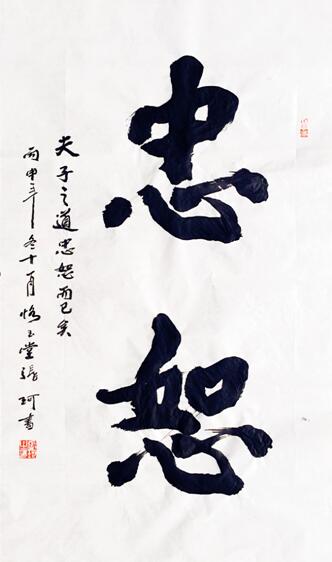 忠恕
夫子之道忠恕而已矣
丙申年冬十一月恪玉堂張珂書